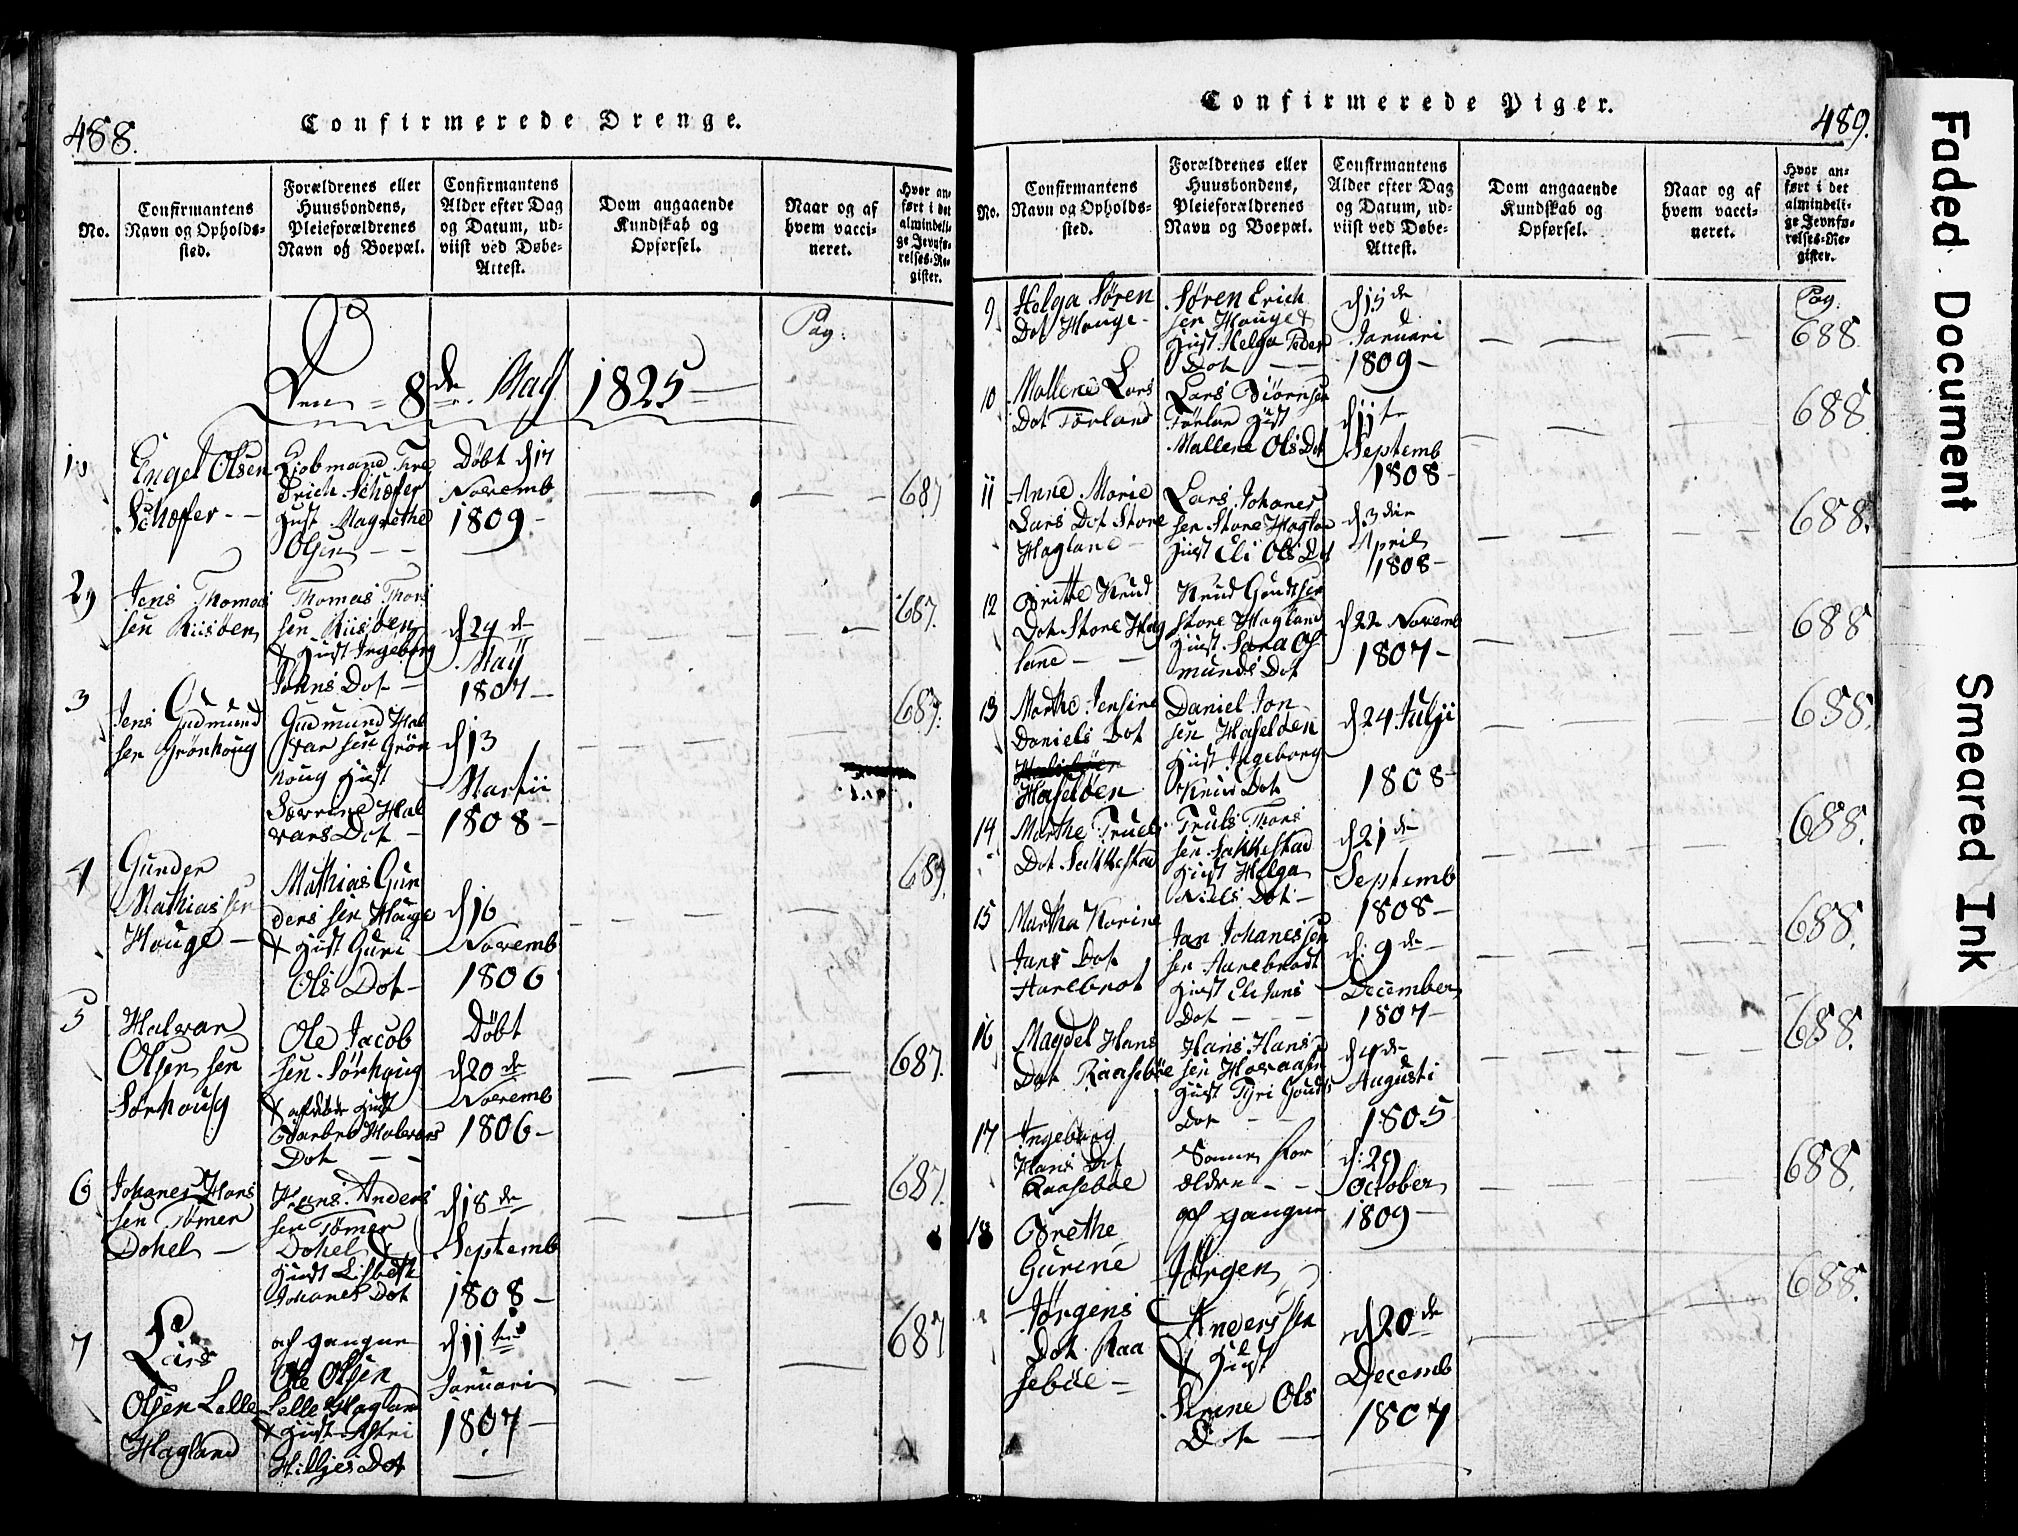 488.
Confirmerede Drenge.
No.
Confirmantens
Navn og Opholds-
sted.
Forældrenes eller
Huusbondens,
Pleieforældrenes
Navn og Boepæl.
Confirmantens
Alder efter Dag
og Datum, ud-
viist ved Døbe-
Attest.
Dom angaaende
Kundskab og
Opførsel.
Naar og af
hvem vacci-
neret.
Hvor an-
ført i det
almindeli-
ge Jevnfø-
relses-Re-
gister.
Pag.
Den 8de May 1825
1
Engel Olsen
Schøffer
Erich Schøfer
Hust Magrethe
Olsen
Døbt d 17
Novemb
1809
687
2
Jens Thomas
sen Riisøen
Thomas Thors
sen Riisøen
& Hust Ingeborg
Johns Dot
d 24 de
Maij
1807
687.
3
Jens Gudmund
sen Grønhoug
Gudmund Hal
var sen Grøn
houg Hust
Hal
vars Dot
d 13
Martii
1808
687.
4
Gunder
Mathias sen
Houge
Mathias Gun
ders sen Houge
& Hust Guri
Ols Dot
d 16
Novemb
1806
687.
5
Halvar
Olsen sen
Sørhoug
Ole Jacob
sen Sørhoug
& Hust
Halvors
Dot
Døbt
d 20 de
Novemb
1806
687.
6
Johanes Hans
sen Tømer
Dohel
Hans Anders
sen Tømer
Dohel &
Hust Lisbeth
Johanes Dot
d 18 de
Septemb
1808
687.
7
Lars
Olsen Lelle
Hagland
af gangne
Ole Olsen
Lelle Hagland
& Hust Astri
Hilljes Dot
d 11 te
Januari
1807
687
Confirmerede Piger.
489.
No.
Confirmantens
Navn og Opholds-
sted.
Forældrenes eller
Huusbondens,
Pleieforældrenes
Navn og Boepæl.
Confirmantens
Alder efter Dag
og Datum, ud-
viist ved Døbe-
Attest.
Dom angaaende
Kundskab og
Opførsel.
Naar og af
hvem vacci-
neret.
Hvor an-
ført i det
almindeli-
ge Jevnfø-
relses-Re-
gister.
Pag.
9
Helga Søren
Dot Houge
Søren Erich
sen Houge &
Hust Helga Peder
Dot
d 15 de
Januari
1809
688
10
Mallene Lars
Dot Førland
Lars Biørnsen
Førlan Hust
Mallene Ols Dot
d 11 te
Septemb
1808
688
11
Anne Marie
Lars Dot Store
Hagland
Lars Johanes
sen Store Haglan
Hust Eli Ols Dot
d 3 die
April
1808
688.
12
Britte Knud
Dot Store Hag
land
Knud Goudtsen
Store Hagland
Hust Sara Os
munds Dot
d 22 Novemb
1807
688
13
Marthe Jensine
Daniels Dot
Haseløen
Daniel Jon
sen Haseløen
Hust Ingeborg
Knud Dot
d 24 Julji
1808
688.
14
Marthe Truels
Dot Sakkestad
Truls Thors
sen Sakkestad
Hust Helga
Niels Dot
d 21 de
Septemb
1808
688.
15
Martha Karine
Jans Dot
Aarebrot
Jan Johanessen
sen Aarebrodt
Hust Eli Jans
Dot
d: 9 de
December
1807
688.
16
Magdel Hans
Dot Raasebøe
Hans Hans
sen
Hust Tyri Gouds
Dot
d 4 de
Augusti
1805
688.
17
Ingeborg
Hans Dot
Raasebøe
Samme for
ældre
d: 29
October
1809
688.
18
Grethe
Gurine
Jørgens
Dot Raa
sebøe
af gangne
Jørgen
Anderssen
& Hust
Serene Ols
Dot
d 20 de
Decemb
1807
688.
Faded Document
Smeared Ink